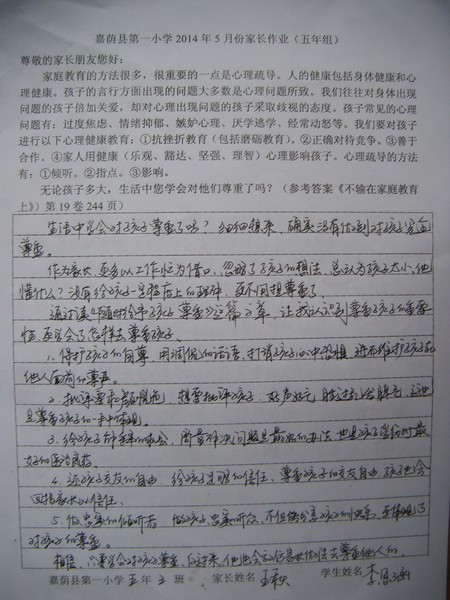 嘉荫县第一小学 2014 年 5 月份家长作业（五年组）
尊敬的家长朋友您好：
家庭教育的方法很多，很重要的一点是心理疏导。人的健康包括身体健康和心
理健康。孩子的言行方面出现的问题大多数是心理问题所致。我们往往对身体出现
问题的孩子倍加关爱，却对心理出现问题的孩子采取歧视的态度。孩子常见的心理
问题有：过度焦虑、情绪抑郁、嫉妒心理、厌学逃学、经常动怒等。我们要对孩子
进行以下心理健康教育：①抗挫折教育（包括磨砺教育）。②正确对待竞争。③善于
合作。④家人用健康（乐观、豁达、坚强、理智）心理影响孩子。心理疏导的方法
有：①倾听。②指点。③影响。
无论孩子多大，生活中您学会对他们尊重了吗？（参考答案《不输在家庭教育
上》）第 19 卷 244 页）
生活中学会对孩子尊重了吗？细细想来，确实没有做到对孩子完全
尊重。
作为家长，更多以工作忙为借口，忽略了孩子的想法，总认为孩子太小，他
懂什么？没有给孩子一定格度上的理解，更不用提尊重了。
通过读《随时给予孩子尊重》这篇文章，让我认识到尊重孩子的重要
性，更学会了怎样去尊重孩子。
1. 保护孩子的自尊，用调侃的话语，打消孩子心中恐惧，进而维护孩子在
他人面前的尊严。
2. 批评要和颜悦色，想要批评孩子，好声好气
是尊重孩子的一种体现。
3. 给孩子解释的机会，商量解决问题是最好的办法，也是孩子受伤时最
好的医治良药。
4. 还孩子交友的自由，给孩子足够的信任，尊重孩子的交友自由，孩子也会
回报家长以信任。
5. 做忠实的倾听者，做孩子忠实的听众，不但能分享孩子的快乐，更体现了
对孩子的尊重。
相信，只要学会对孩子尊重，反过来，他也会
去尊重他人的。
嘉荫县第一小学 五 年 3 班 家长姓名 王秋 学生姓名 李